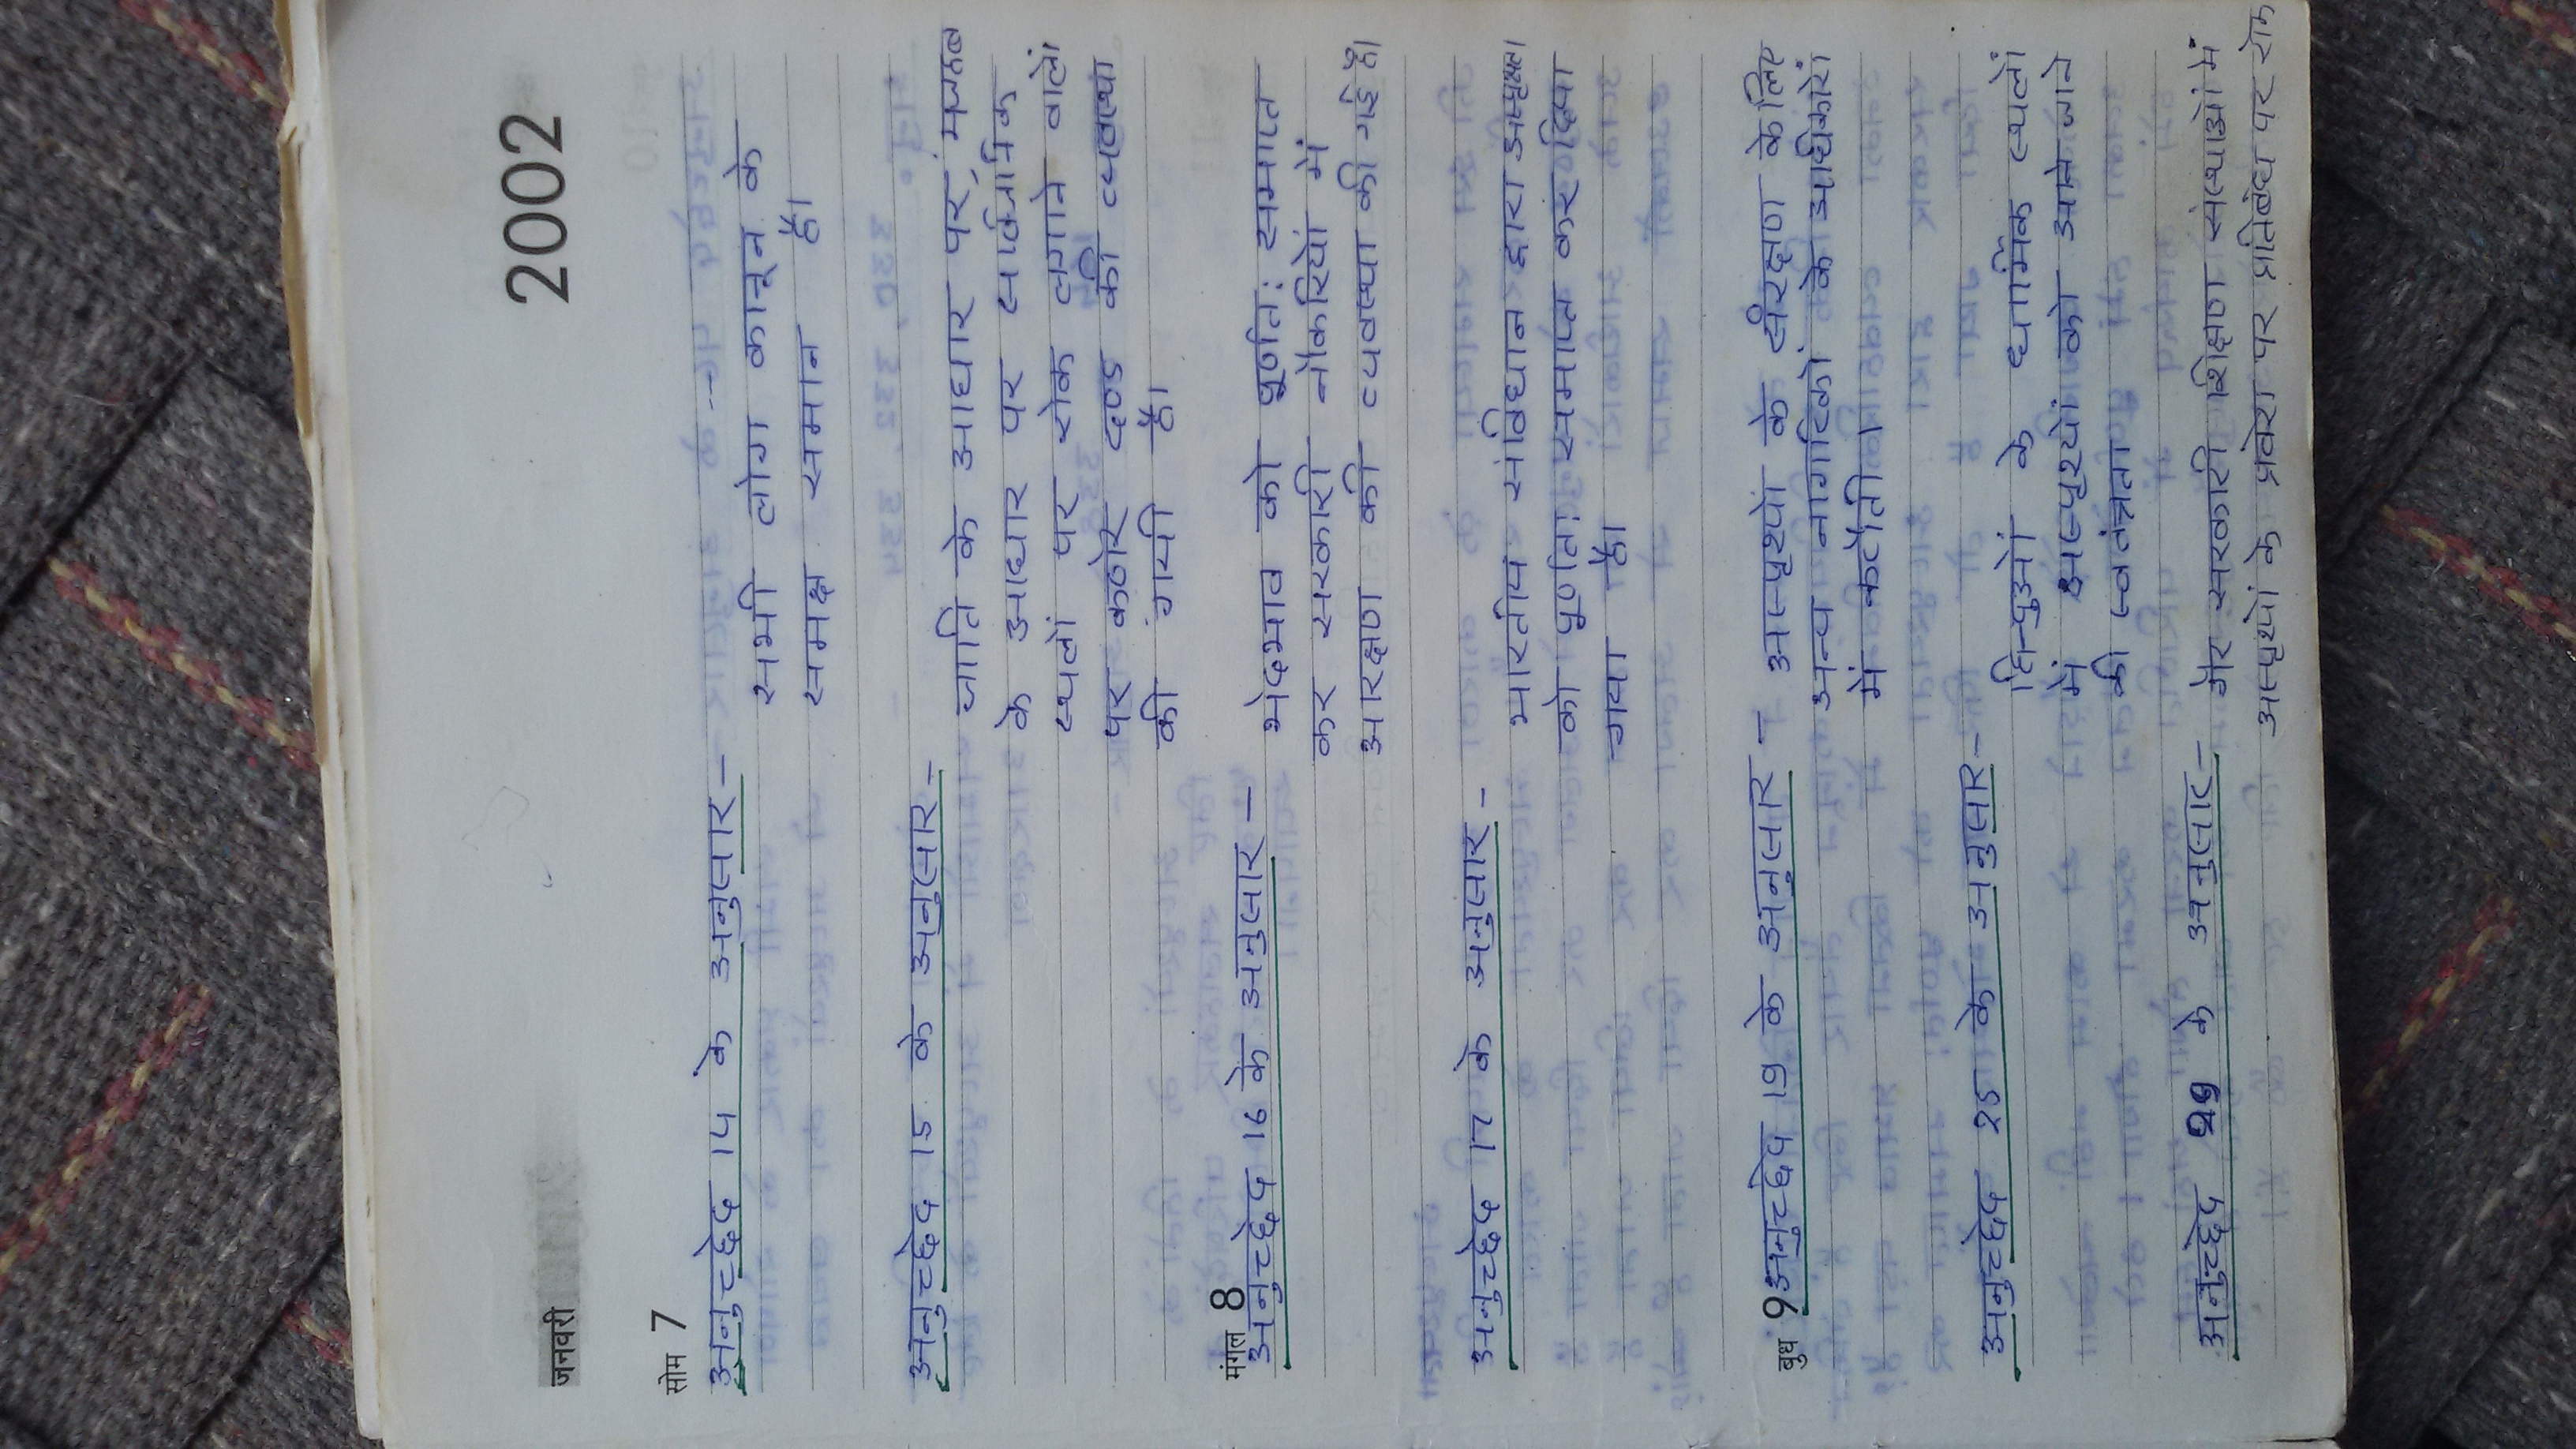 जनवरी 2002
सोम 7
अनुच्छेद 14 के अनुसार –
सभी लोग कानून के
समक्ष समान है।
अनुच्छेद 15 के अनुसार –
जाति के आधार पर,
के आधार पर सार्वजनिक
स्थलों पर रोक लगाने वालों
पर कठोर दण्ड की व्यवस्था
की गयी है।
मंगल 8
अनुच्छेद 16 के अनुसार –
भेदभाव को पूर्णतः समाप्त
कर सरकारी नौकरियों में
आरक्षण की व्यवस्था की गई है।
अनुच्छेद 17 के अनुसार -
भारतीय संविधान द्वारा अस्पृश्यता
को पूर्णतः समाप्त कर दिया
गया है।
बुध 9
अनुच्छेद 19 के अनुसार –
अस्पृश्यों के संरक्षण के लिए
अन्य नागरिकों के अधिकारों
में कटौती।
अनुच्छेद 25 के अनुसार –
हिन्दुओं के धार्मिक स्थलों
में अस्पृश्यों को आने जाने
की स्वतंत्रता
अनुच्छेद 29 के अनुसार –
गैर सरकारी शिक्षण संस्थाओं में
अस्पृश्यों के प्रवेश पर प्रतिबंध पर रोक